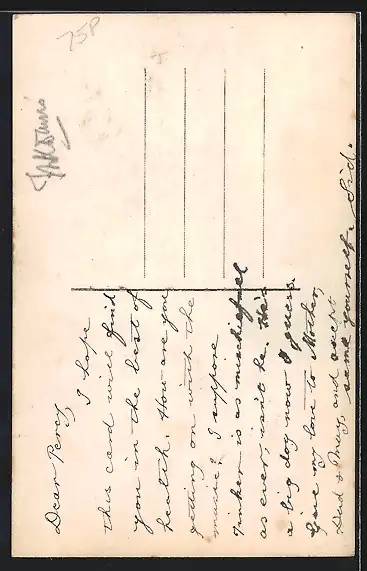 Dear Percy,
I hope
this card will find
you in the best of
health. How are you
getting on with the
music? I suppose
Tinker is as mischiefful
as ever, isn't he. He's
a big dog now I guess.
Give my love to Mother,
Dad & Meg, and accept
same yourself. Sid.
75P